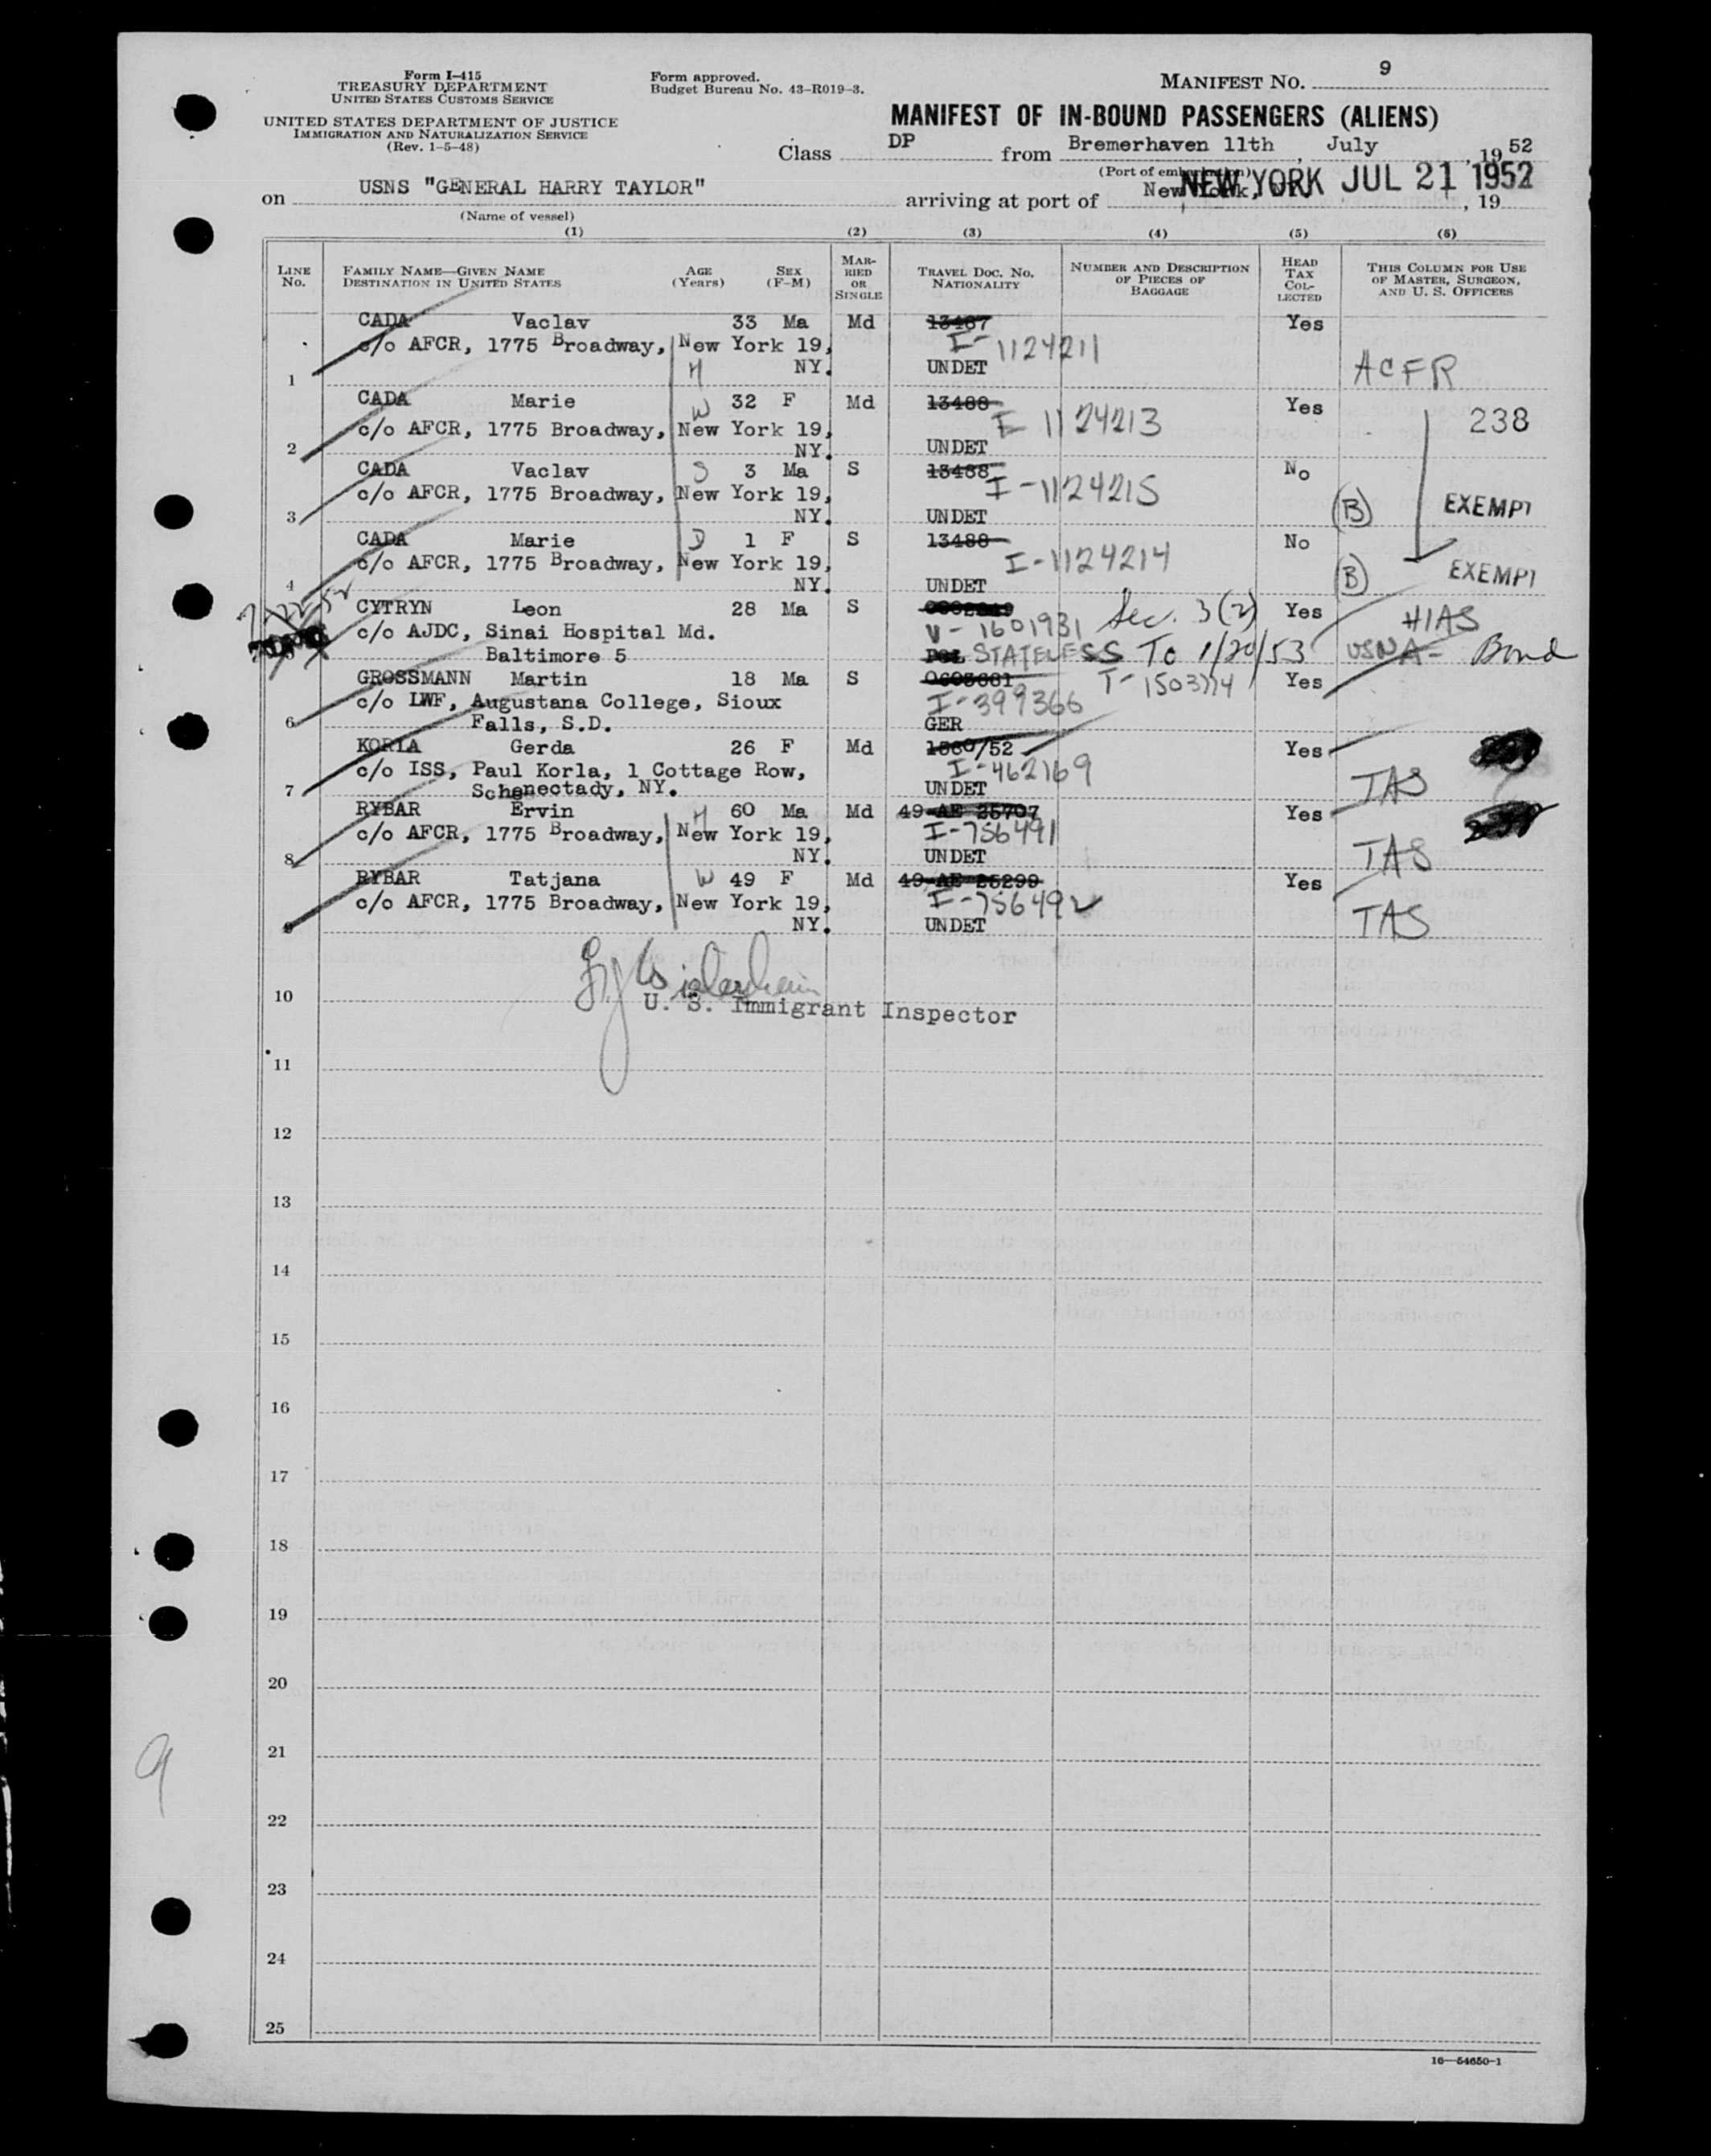 Form I-415
TREASURY DEPARTMENT
UNITED STATES CUSTOMS SERVICE
UNITED STATES DEPARTMENT OF JUSTICE
IMMIGRATION AND NATURALIZATION SERVICE
(Rev. 1-5-48)
Form approved.
Budget Bureau No. 43-R019-3.
MANIFEST NO. 9
MANIFEST OF IN-BOUND PASSENGERS (ALIENS)
Class DP from Bremerhaven 11th, July, 1952
(Port of embarkation)
on USNS "GENERAL HARRY TAYLOR" arriving at port of New York, NEW YORK JUL 21 1952, 19
(Name of vessel)
(1) (2) (3) (4) (5) (6)
LINE No. FAMILY NAME—GIVEN NAME DESTINATION IN UNITED STATES AGE (Years) SEX (F-M) MARRIED OR SINGLE TRAVEL DOC. NO. NATIONALITY NUMBER AND DESCRIPTION OF PIECES OF BAGGAGE HEAD TAX COLLECTED THIS COLUMN FOR USE OF MASTER, SURGEON, AND U. S. OFFICERS
CADA Vaclav 33 Ma Md 13487 Yes
c/o AFCR, 1775 Broadway, New York 19, I-1124211
1 H NY. UNDET ACFR
CADA Marie W 32 F Md 13488 Yes 238
c/o AFCR, 1775 Broadway, New York 19, I-1124213
2 NY. UNDET
CADA Vaclav S 3 Ma S 13488 No
c/o AFCR, 1775 Broadway, New York 19, I-1124215
3 NY. UNDET (B) EXEMPT
CADA Marie D 1 F S 13488 No
c/o AFCR, 1775 Broadway, New York 19, I-1124214
4 NY. UNDET (B) EXEMPT
7/22/52 CYTRYN Leon 28 Ma S Sec. 3(2) Yes HIAS
c/o AJDC, Sinai Hospital Md. V-1601931
Baltimore 5 STATELESS To 1/20/53 USNA- Bond
GROSSMANN Martin 18 Ma S 0603681 Yes
c/o LWF, Augustana College, Sioux I-399366
6 Falls, S.D. GER
KORLA Gerda 26 F Md 1580/52 Yes
c/o ISS, Paul Korla, 1 Cottage Row, I-462169
7 Schenectady, NY. UNDET TAS
RYBAR Ervin H 60 Ma Md 49-AE 25707 Yes
c/o AFCR, 1775 Broadway, New York 19, I-756491
8 NY. UNDET TAS
RYBAR Tatjana W 49 F Md 49-AE 25299 Yes
c/o AFCR, 1775 Broadway, New York 19, I-756492
9 NY. UNDET TAS
10
U. S. Immigrant Inspector
11
12
13
14
15
16
17
18
19
20
21
9
22
23
24
25
16—54650-1